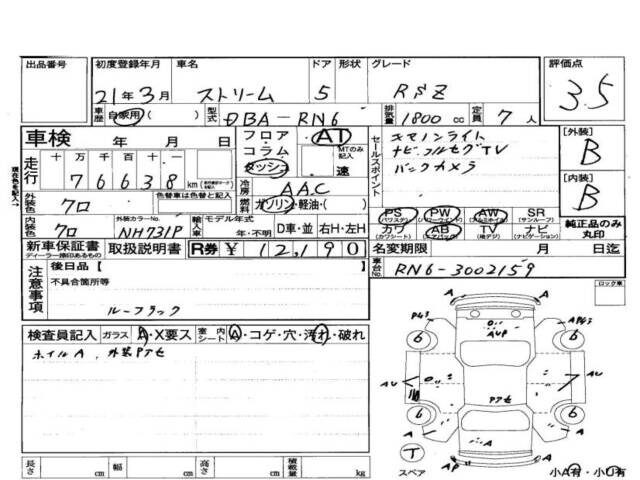 出品番号 初度登録年月 車名 ドア 形状 グレード 評価点
21年3月 ストリーム 5 RSZ 3.5
車歴 自家用( ) 型式 DBA-RN6 排気量 1800 cc 定員 7 人
車検 年 月 日 フロア AT
走行 十 万 千 百 十 一 コラム MTのみ記入
76638 km ダッシュ 速
セールスポイント
ナビ フルセグTV
バックカメラ
[外装] B
[内装] B
外装色 クロ 色替車は色替と記入 冷房 AAC
燃料 ガソリン・軽油・( )
PS (パワステ) PW (パワーウインド) AW (アルミホイル) SR (サンルーフ)
カワ (カワシート) AB (エアバック) TV (地デジ) ナビ (ナビゲーション)
純正品のみ丸印
内装色 クロ 外装カラーNo. NH731P 輸入車 モデル年式 年・不明 D車・並 右H・左H
新車保証書 ディーラー捺印あるもの 取扱説明書 R券 ¥ 12,190
名変期限 月 日迄
車台No. RN6-3002159
注意事項 後日品【 】
不具合箇所等
ルーフラック
ロック車
検査員記入 ガラス A・X要ス 室内シート A・コゲ・穴・汚れ・破れ
ホイルA、外装Pアセ
P43 AP43
AUP
6 6
AU AU
Pアセ
6 6
A A
T スペア
AP A
小A有・小U有
長さ cm 幅 cm 高さ cm 積載量 kg